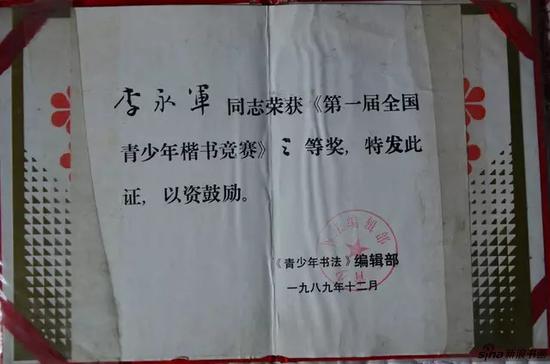 李永軍同志荣获《第一届全国
青少年楷书竞赛》三等奖，特发此
证，以资鼓励。
《青少年书法》编辑部
一九八九年十二月
sina新浪书画